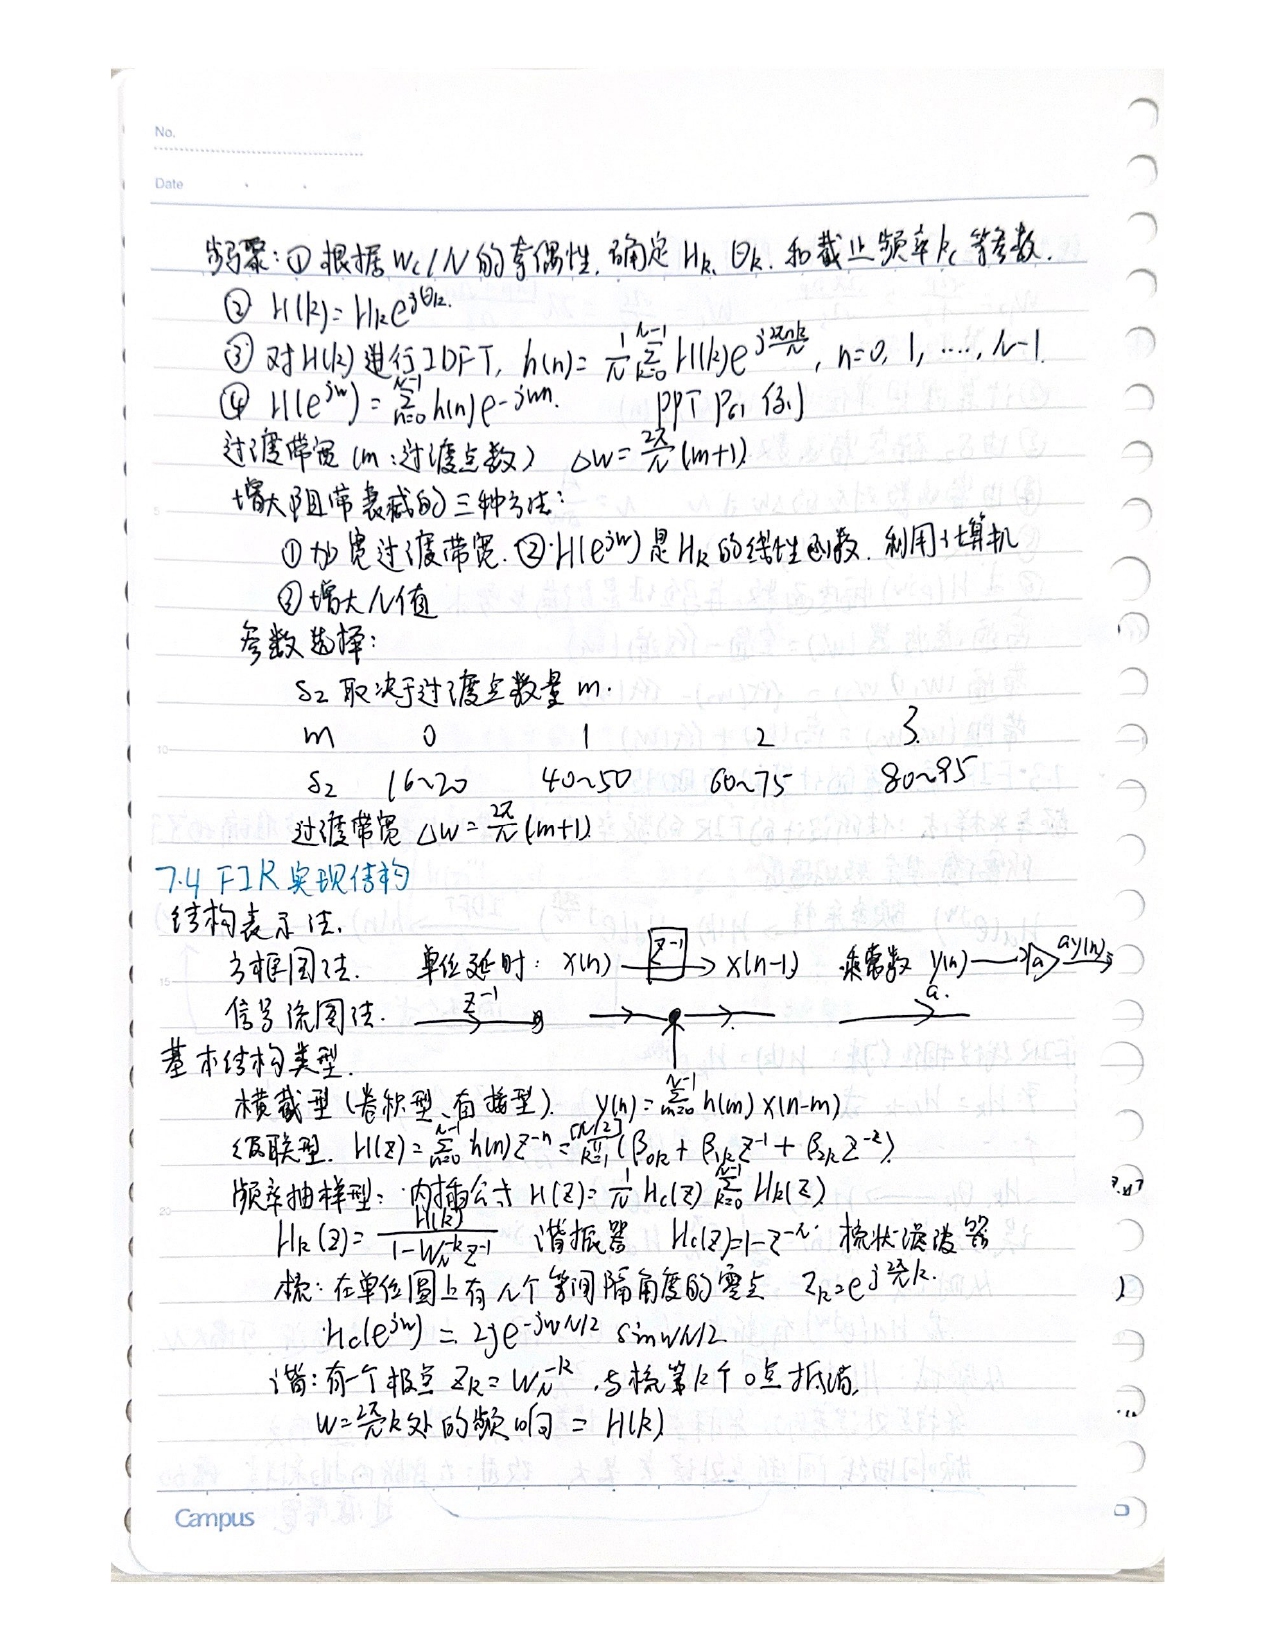 No.
Date
步骤:① 根据 Wc/N的奇偶性,确定 Hk、θk. 和截止频率kc 等参数.
② H(k)=Hk e^{jθk}.
③ 对H(k)进行IDFT, h(n)= 1/N Σ_{k=0}^{N-1} H(k)e^{j2πnk/N}, n=0, 1, ...., N-1.
④ H(e^{jw})=Σ_{n=0}^{N-1} h(n)e^{-jwn}. PPT P61 例
过渡带宽 (m:过渡点数) ΔW=2π/N (m+1).
增大阻带衰减的三种方法:
①加宽过渡带宽. ②H(e^{jw})是Hk的线性函数. 利用计算机
③增大N值
参数选择:
δ2取决于过渡点数量m.
m 0 1 2 3.
δ2 16~20 40~50 60~75 80~95
过渡带宽 ΔW=2π/N (m+1)
7.4 FIR实现结构
结构表示法.
方框图法. 单位延时: x(n) z^{-1} x(n-1) 乘常数 y(n) a ay(n)
信号流图法. z^{-1} a.
基本结构类型.
横截型(卷积型、直接型). y(n)=Σ_{m=0}^{N-1} h(m)x(n-m)
级联型. H(z)=Σ_{n=0}^{N-1} h(n)z^{-n}=Π_{k=1}^{[N/2]} (β0k+β1k z^{-1}+β2k z^{-2}).
频率抽样型: 内插公式 H(z)=1/N Hc(z) Σ_{k=0}^{N-1} Hk(z)
Hk(z)=H(k)/(1-W_N^{-k}z^{-1}) 谐振器 Hc(z)=1-z^{-N} 梳状滤波器
梳: 在单位圆上有N个等间隔角度的零点 Zk=e^{j2π/N k}.
Hc(e^{jw})=2je^{-jwN/2} sinwN/2
谐: 有一个极点 Zk=W_N^{-k}, 与梳第k个0点抵消,
W=2π/N k处的频响=H(k)
Campus